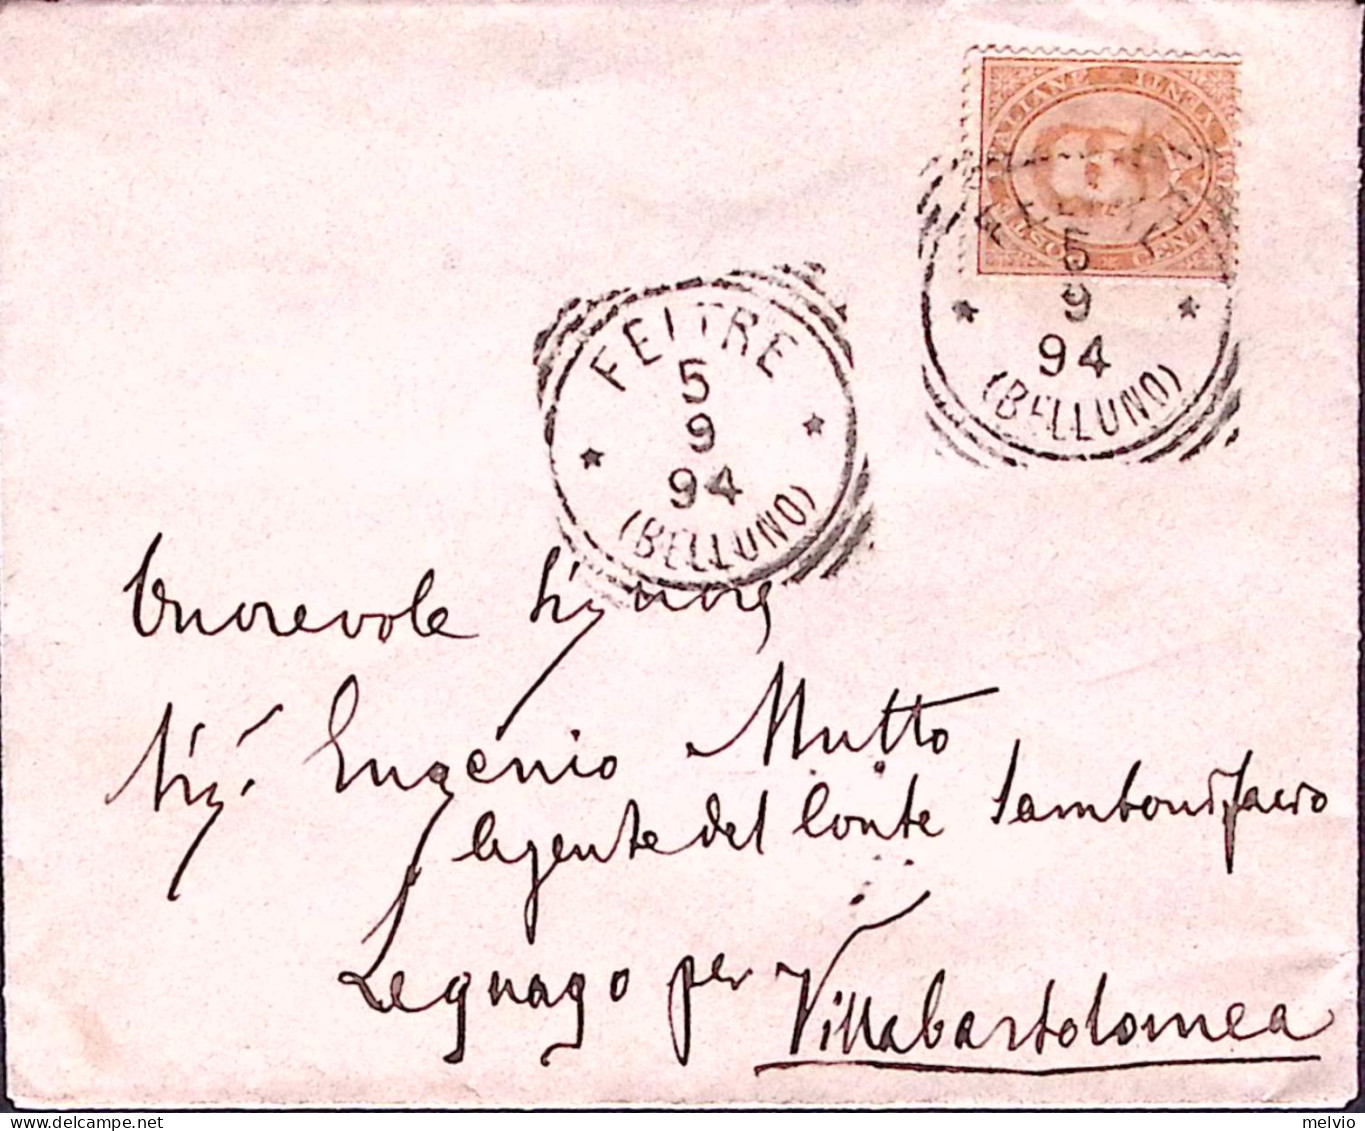 FELTRE
5
9
94
(BELLUNO)
5
9
94
(BELLUNO)
Onorevole Signore
Sigr Eugenio Mutto
Agente del Conte Sambonifacio
Legnago per Villabartolomea
melvio